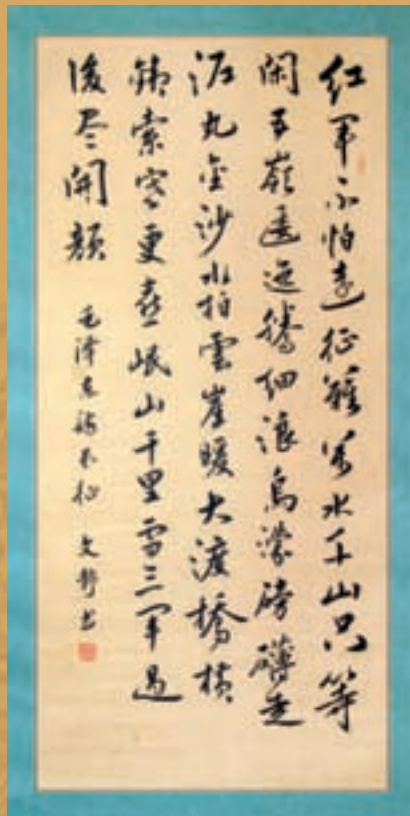 红军不怕远征難萬水千山只等
闲五嶺逶迤腾细浪烏濛磅礴走
泥丸金沙水拍雲崖暖大渡橋横
鉄索寒更喜岷山千里雪三军过
後尽開颜
毛泽东诗长征 文 书